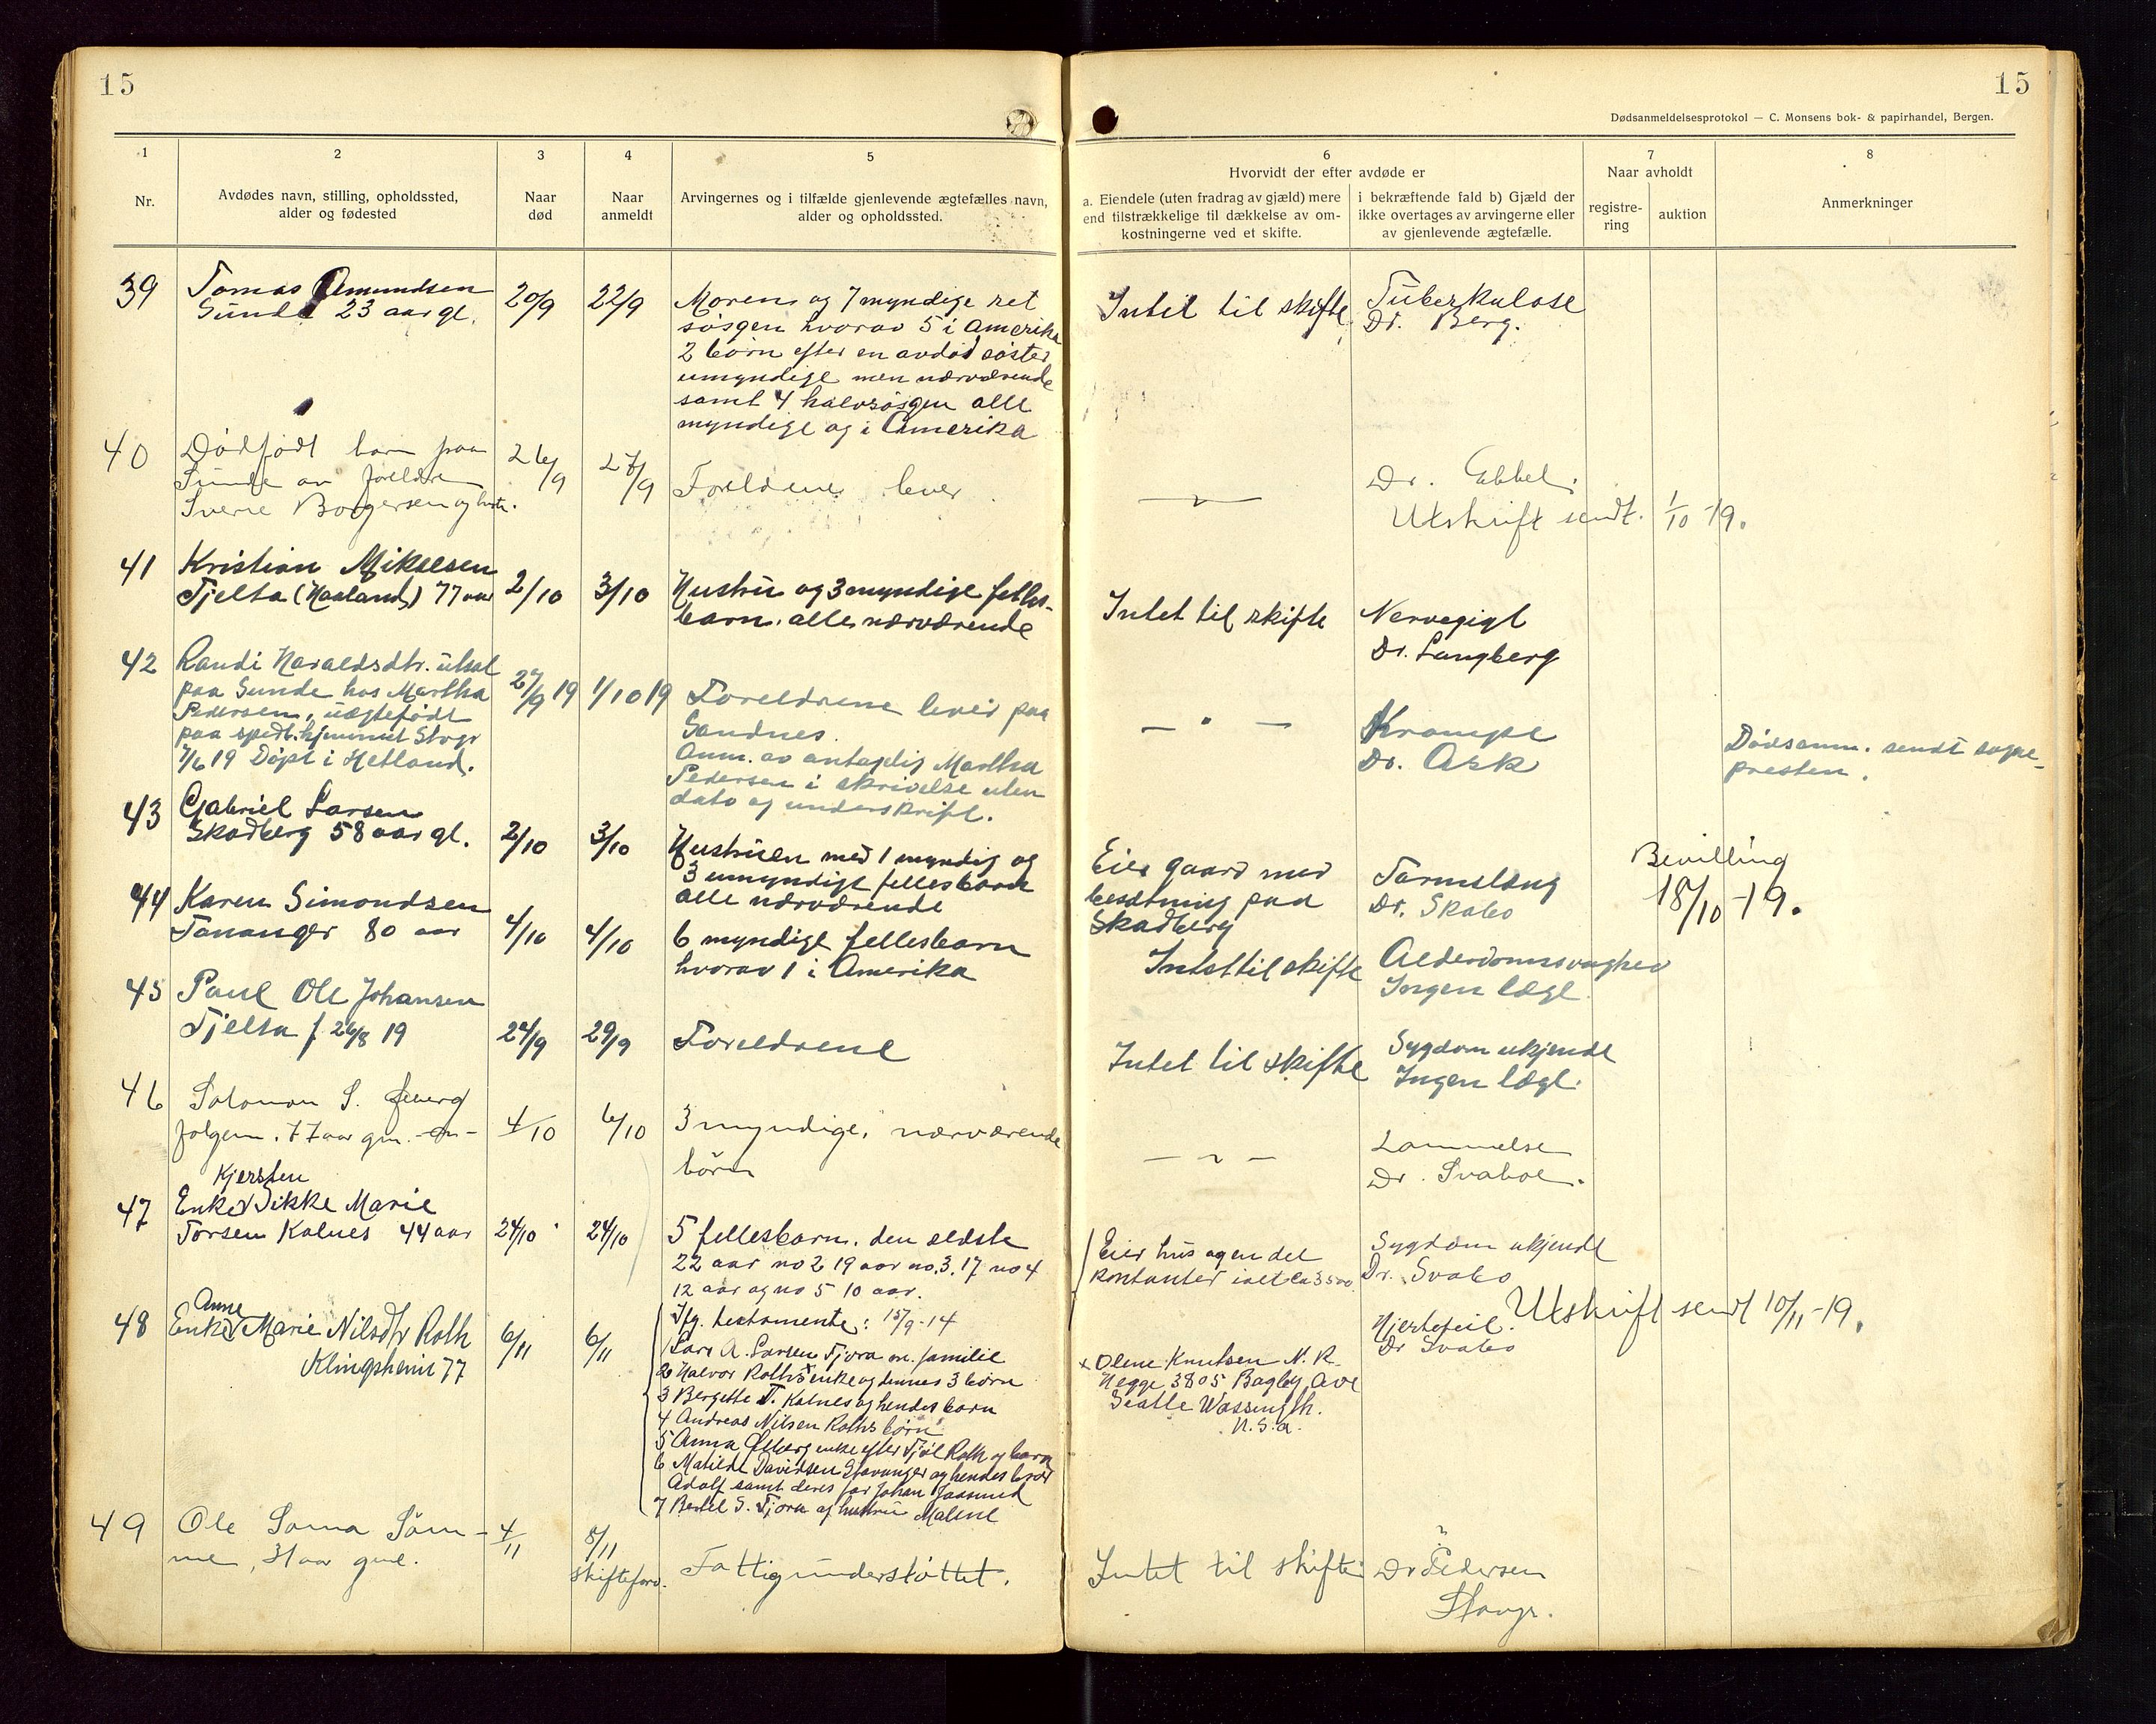 15
15
Dødsanmeldelsesprotokol — C. Monsens bok- & papirhandel, Bergen.
1
Nr.
2
Avdødes navn, stilling, opholdssted,
alder og fødested
3
Naar
død
4
Naar
anmeldt
5
Arvingernes og i tilfælde gjenlevende ægtefælles navn,
alder og opholdssted.
6
Hvorvidt der efter avdøde er
a. Eiendele (uten fradrag av gjæld) mere
end tilstrækkelige til dækkelse av om-
kostningerne ved et skifte.
i bekræftende fald b) Gjæld der
ikke overtages av arvingerne eller
av gjenlevende ægtefælle.
7
Naar avholdt
registre-
ring
auktion
8
Anmerkninger
39
Tomas Amundsen
Sunde 23 aar gl.
20/9
22/9
Moren og 7 myndige ret
søsgen hvorav 5 i Amerika
2 børn efter en avdød søster
umyndige men nærværende
samt 4 halvsøsgen alle
myndige og i Amerika
Intet til skifte
Tuberkulose
Dr. Berg.
40
Dødfødt barn paa
Sunde av foreldre
Sverre Borgersen og hustr.
26/9
27/9
Foreldrene lever.
— " —
Dr. Ebbel.
Utskrift sendt. 1/10-19.
41
Kristian Mikalsen
Tjelta (Haaland) 77 aar
2/10
3/10
Hustru og 3 myndige felles-
barn. alle nærværende
Intet til skifte
Nervegigt
Dr. Langberg
42
Randi Haraldsdtr. utsat
paa Sunde hos Martha
Pedersen, uægtefødt
paa spedb.hjemmet Stvgr
7/6 19 Døpt i Hetland.
27/9 19
1/10 19
Foreldrene lever paa
Sandnes.
Anm. av antagelig Martha
Pedersen i skrivelse uten
dato og underskrift.
— " —
Krampe
Dr. Ask
Dødsanm. sendt sogne-
presten.
43
Gabriel Larsen
Skadberg 58 aar gl.
2/10
3/10
Hustruen med 1 myndig og
3 umyndige fellesbarn
alle nærværende
Eier gaard med
besætning paa
Skadberg
Tarmslyng
Dr. Skabo
Bevilling
18/10-19.
44
Karen Simondsen
Tananger 80 aar
4/10
4/10
6 myndige fellesbarn
hvorav 1 i Amerika
Intet til skifte
Alderdomssvaghed
Ingen læge
45
Paul Ole Johansen
Tjelta f. 26/8 19
24/9
29/9
Foreldrene
Intet til skifte
Sygdom ukjendt
Ingen læge.
46
Salomon S. Øeberg
folgem. 77 aar gm.
4/10
6/10
3 myndige, nærværende
børn
— " —
Lammelse
Dr. Svaboe.
47
Kjersten
Enke Sikke Marie
Torsen Kalnes 44 aar
24/10
24/10
5 fellesbarn. den eldste
22 aar no 2 19 aar no. 3. 17 no 4
12 aar og no 5 10 aar.
Eier hus og en del
kontanter ialt ca 3500
Sygdom ukjendt
Dr. Svabo
48
Anne
Enke Marie Nilsdtr Roth
Klingsheim 77
6/11
6/11
Ifg. testamente: 15/9-14
1 Lars A. Larsen Tjora m. familie
2 Halvor Roths enke og dennes 3 børn
3 Bergette T. Kalnes og hendes barn
4 Andreas Nilsen Roths børn
5 Anna Øeberg enke efter Tjøl Roth og barn
6 Matilde Davidsen Stavanger og hendes bror
Adolf samt deres far Johan Jaasund
7 Bertel S. Tjora og hustru Malene
x Olene Knutsen N. R.
Hegge 3805 Bagley Ave
Seatle Wassingth.
U.S.a.
Hjertefeil.
Dr Svabo
Utskrift sendt 10/11-19.
49
Ole Soma Søm-
me, 31 aar gml.
4/11
8/11
skifteforv.
Fattigunderstøttet.
Intet til skifte
Dr Pedersen
Stavgr.